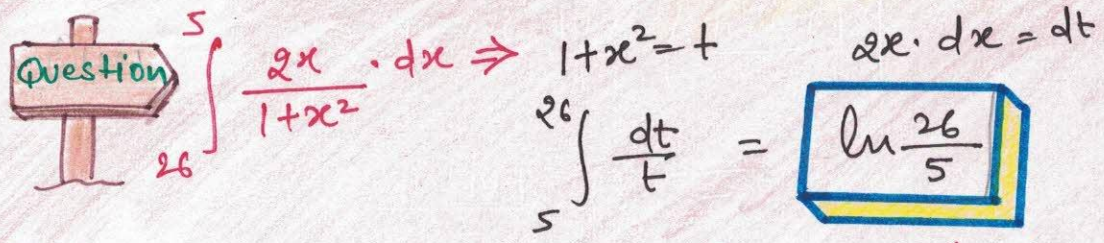 Question ∫₂₆⁵ 2x/(1+x²) · dx ⇒ 1+x² = t 2x · dx = dt
∫₅²⁶ dt/t = ln 26/5